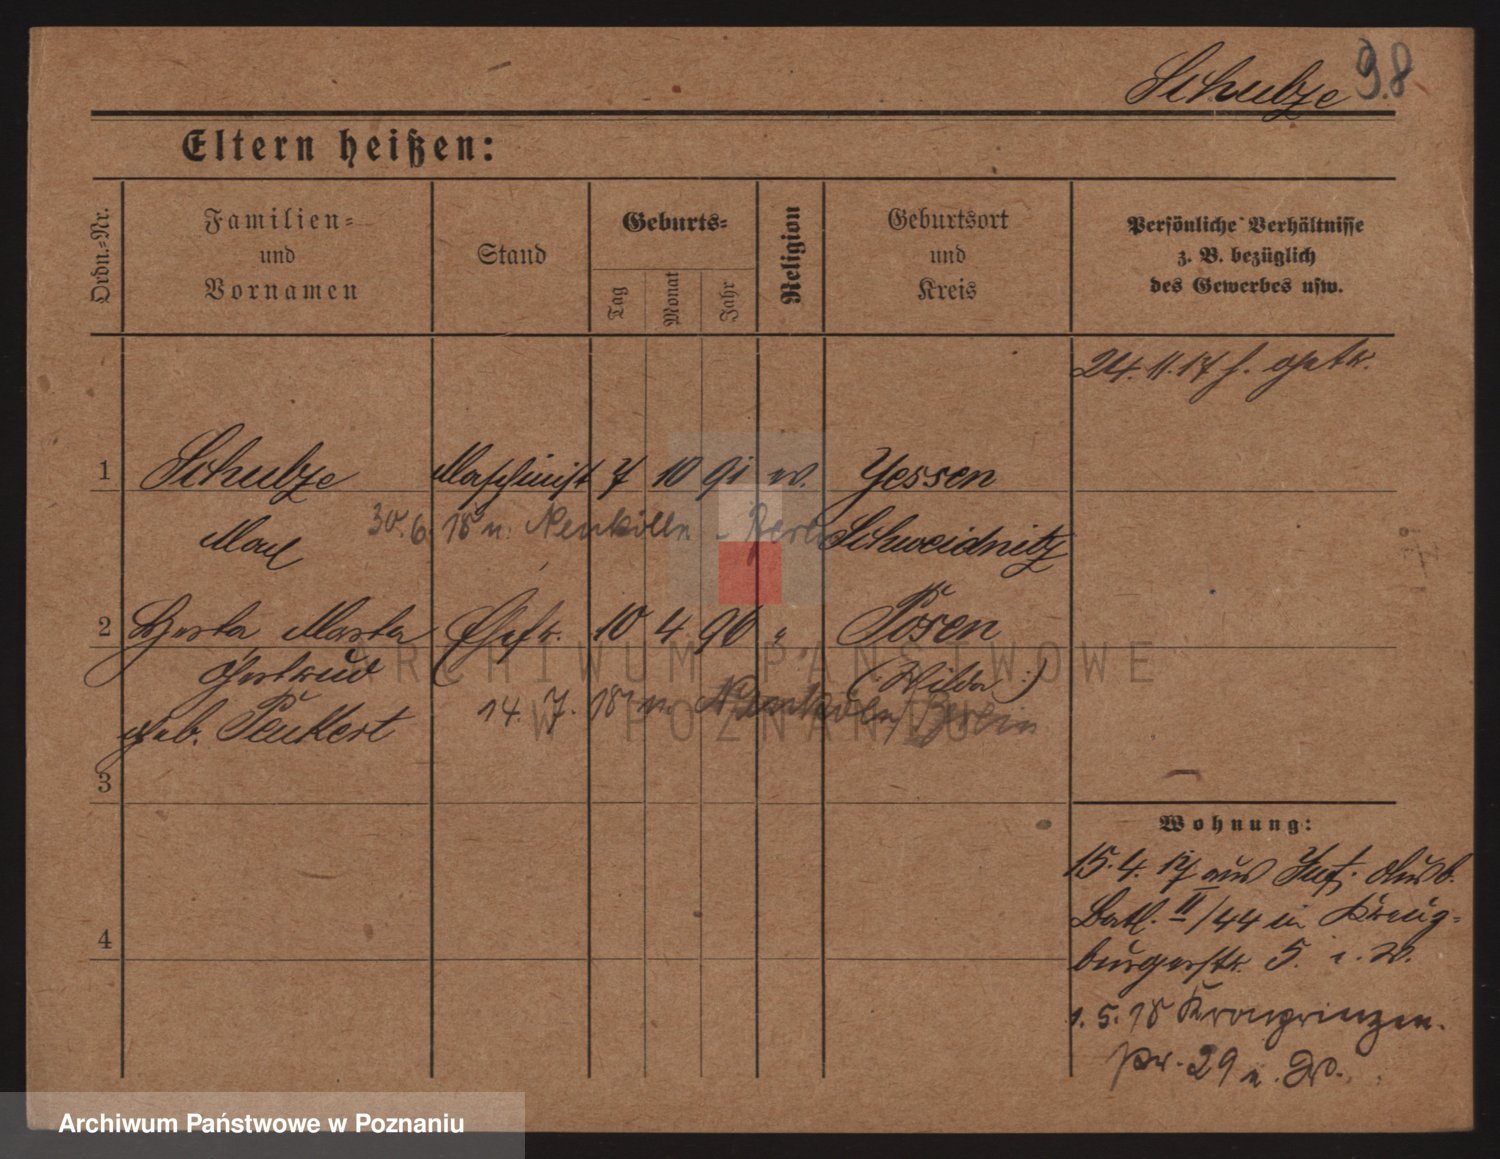 Schulze 98
Eltern heißen:
Ordn.-Nr.
Familien- und Vornamen
Stand
Geburts-
Tag
Monat
Jahr
Religion
Geburtsort und Kreis
Persönliche Verhältnisse
z. B. bezüglich
des Gewerbes usw.
24. 11. 17 h. getr.
1 Schulze Maschinist 7 10 91 ev. Jessen
30. 6. 18 n. Neukölln - Berlin
Max Schweidnitz
2 Herta Marta Ehefr. 10 4 90 " Posen
Gertrud (Wilda)
14. 7. 18 n. Neukölln Berlin
geb. Peukert
3
Wohnung:
15. 4. 17 aus Inf.
Batl. II/44 in Kreuz-
4
burgerstr. 5. i. W.
1. 5. 18 Kronprinzen-
29 W.
ARCHIWUM PAŃSTWOWE
W POZNANIU
Archiwum Państwowe w Poznaniu